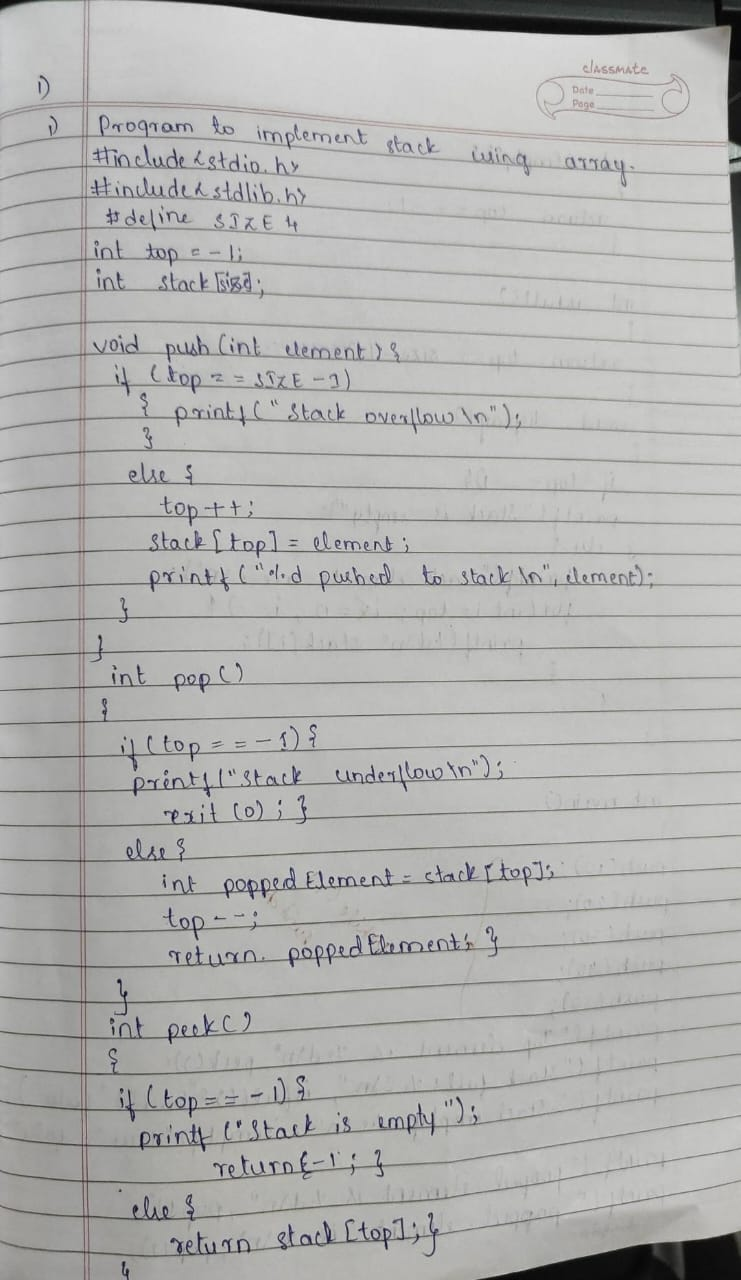 classmate
Date
Page
1)
i) Program to implement stack using array.
#include <stdio.h>
#include <stdlib.h>
#define SIZE 4
int top = -1;
int stack [size];
void push (int element) {
if (top == SIZE -1)
{ printf (" Stack overflow \n");
}
else {
top ++;
stack [top] = element;
printf ("%d pushed to stack \n", element);
}
}
int pop ()
{
if (top == -1) {
printf ("Stack underflow \n");
exit (0); }
else {
int popped Element = stack [top];
top --;
return popped Element; }
}
int peek ()
{
if (top == -1) {
printf ("Stack is empty ");
return -1; }
else {
return stack [top]; }
}